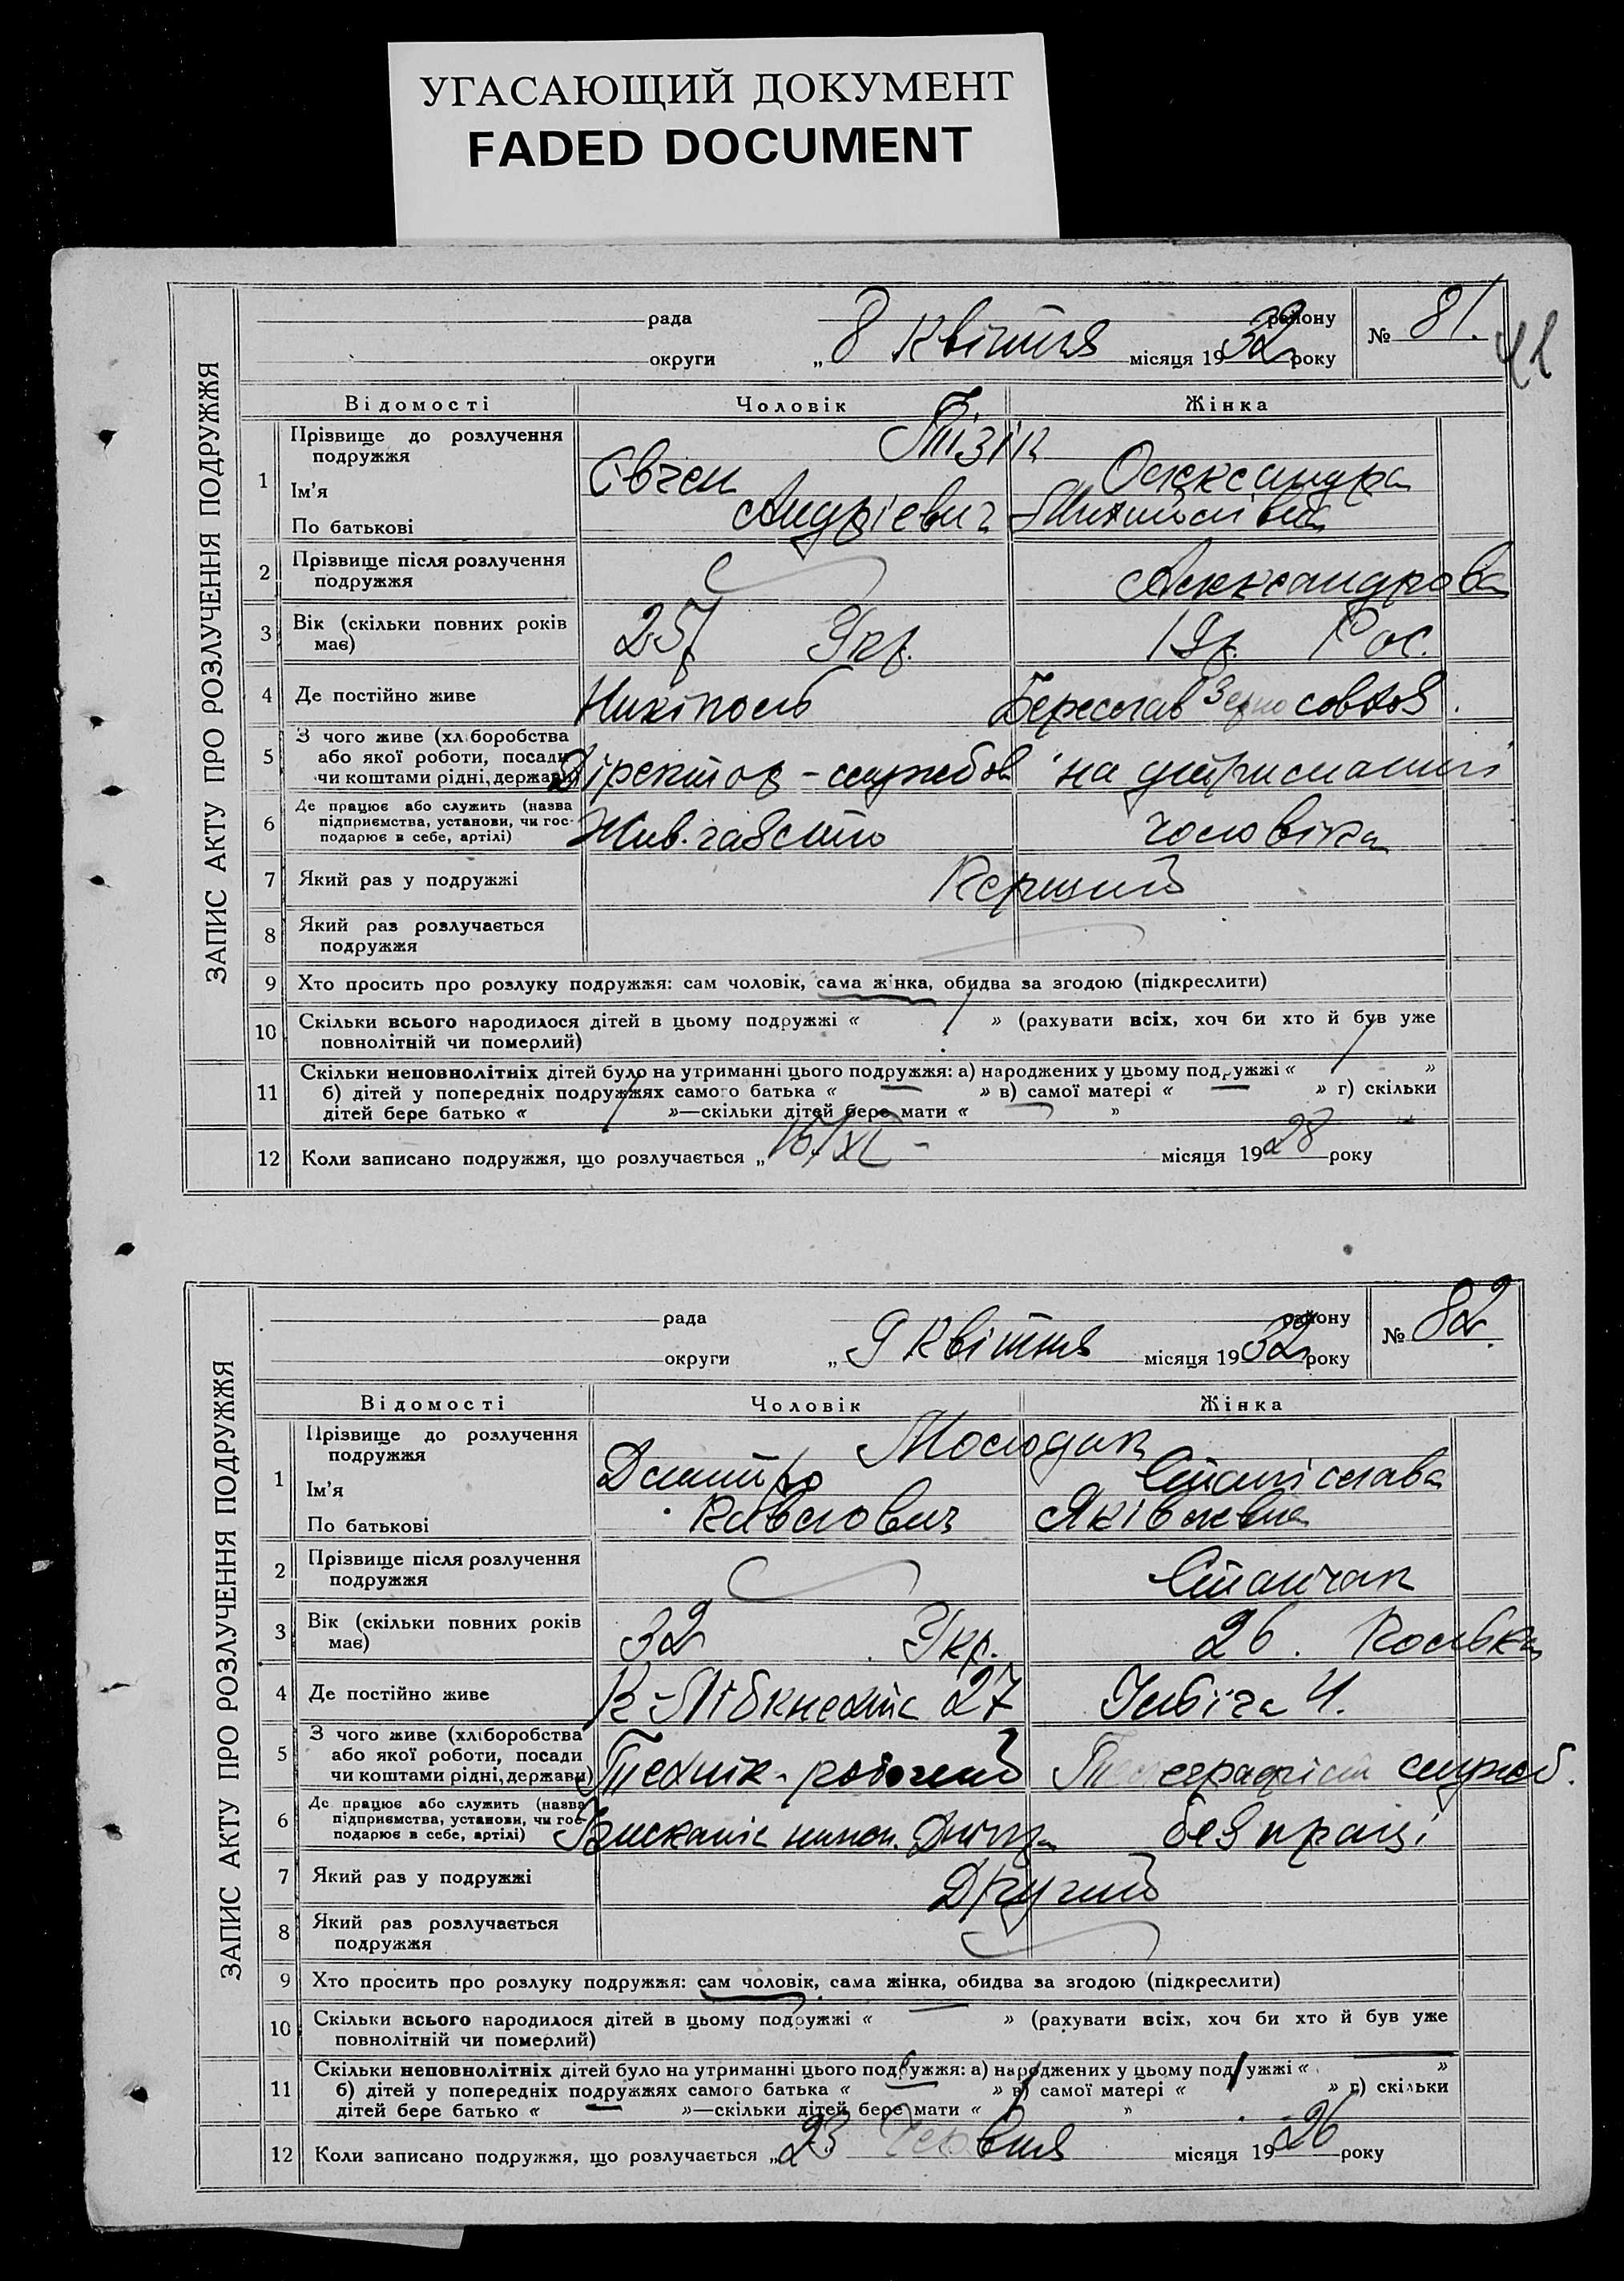 УГАСАЮЩИЙ ДОКУМЕНТ
FADED DOCUMENT
ЗАПИС АКТУ ПРО РОЗЛУЧЕННЯ ПОДРУЖЖЯ
рада району
округи „ 8 Квітня місяця 1932 року
№ 81.
Відомості Чоловік Жінка
1 Прізвище до розлучення подружжя
Ім'я Євген Олександра
По батькові Андрієвич
2 Прізвище після розлучення подружжя Александрова
3 Вік (скільки повних років має) 25 Укр. 19 р. Рос.
4 Де постійно живе Нікіполь Береслав Зерносовхоз.
5 З чого живе (хліборобства або якої роботи, посади чи коштами рідні, держави) Діректор - службов на утриманні
6 Де працює або служить (назва підприємства, установи, чи господарює в себе, артілі) чоловіка
7 Який раз у подружжі Перший
8 Який раз розлучається подружжя
9 Хто просить про розлуку подружжя: сам чоловік, сама жінка, обидва за згодою (підкреслити)
10 Скільки всього народилося дітей в цьому подружжі « » (рахувати всіх, хоч би хто й був уже
повнолітній чи померлий)
11 Скільки неповнолітніх дітей було на утриманні цього подружжя: а) народжених у цьому подружжі « »
б) дітей у попередніх подружжях самого батька « » в) самої матері « » г) скільки
дітей бере батько « »—скільки дітей бере мати « »
12 Коли записано подружжя, що розлучається „ 15/XI - місяця 1928 року
ЗАПИС АКТУ ПРО РОЗЛУЧЕННЯ ПОДРУЖЖЯ
рада району
округи „ 9 Квітня місяця 1932 року
№ 82.
Відомості Чоловік Жінка
1 Прізвище до розлучення подружжя Молодик
Ім'я Дмитро Станіслава
По батькові Павлович Яківлевна
2 Прізвище після розлучення подружжя Станчак
3 Вік (скільки повних років має) 32 Укр. 26. Полька
4 Де постійно живе К-Лібкнехта 27
5 З чого живе (хліборобства або якої роботи, посади чи коштами рідні, держави) Технік - робочий Телеграфіст службов.
6 Де працює або служить (назва підприємства, установи, чи господарює в себе, артілі) Дніпра без праці
7 Який раз у подружжі Другий
8 Який раз розлучається подружжя
9 Хто просить про розлуку подружжя: сам чоловік, сама жінка, обидва за згодою (підкреслити)
10 Скільки всього народилося дітей в цьому подружжі « » (рахувати всіх, хоч би хто й був уже
повнолітній чи померлий)
11 Скільки неповнолітніх дітей було на утриманні цього подружжя: а) народжених у цьому подружжі « »
б) дітей у попередніх подружжях самого батька « » в) самої матері « » г) скільки
дітей бере батько « »—скільки дітей бере мати « »
12 Коли записано подружжя, що розлучається „ 23 Червня місяця 1926 року